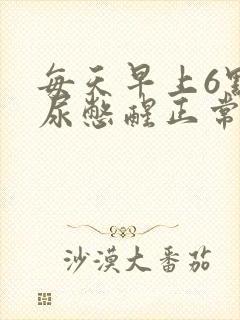 每天早上6點
尿憋醒正常
沙漠大番茄